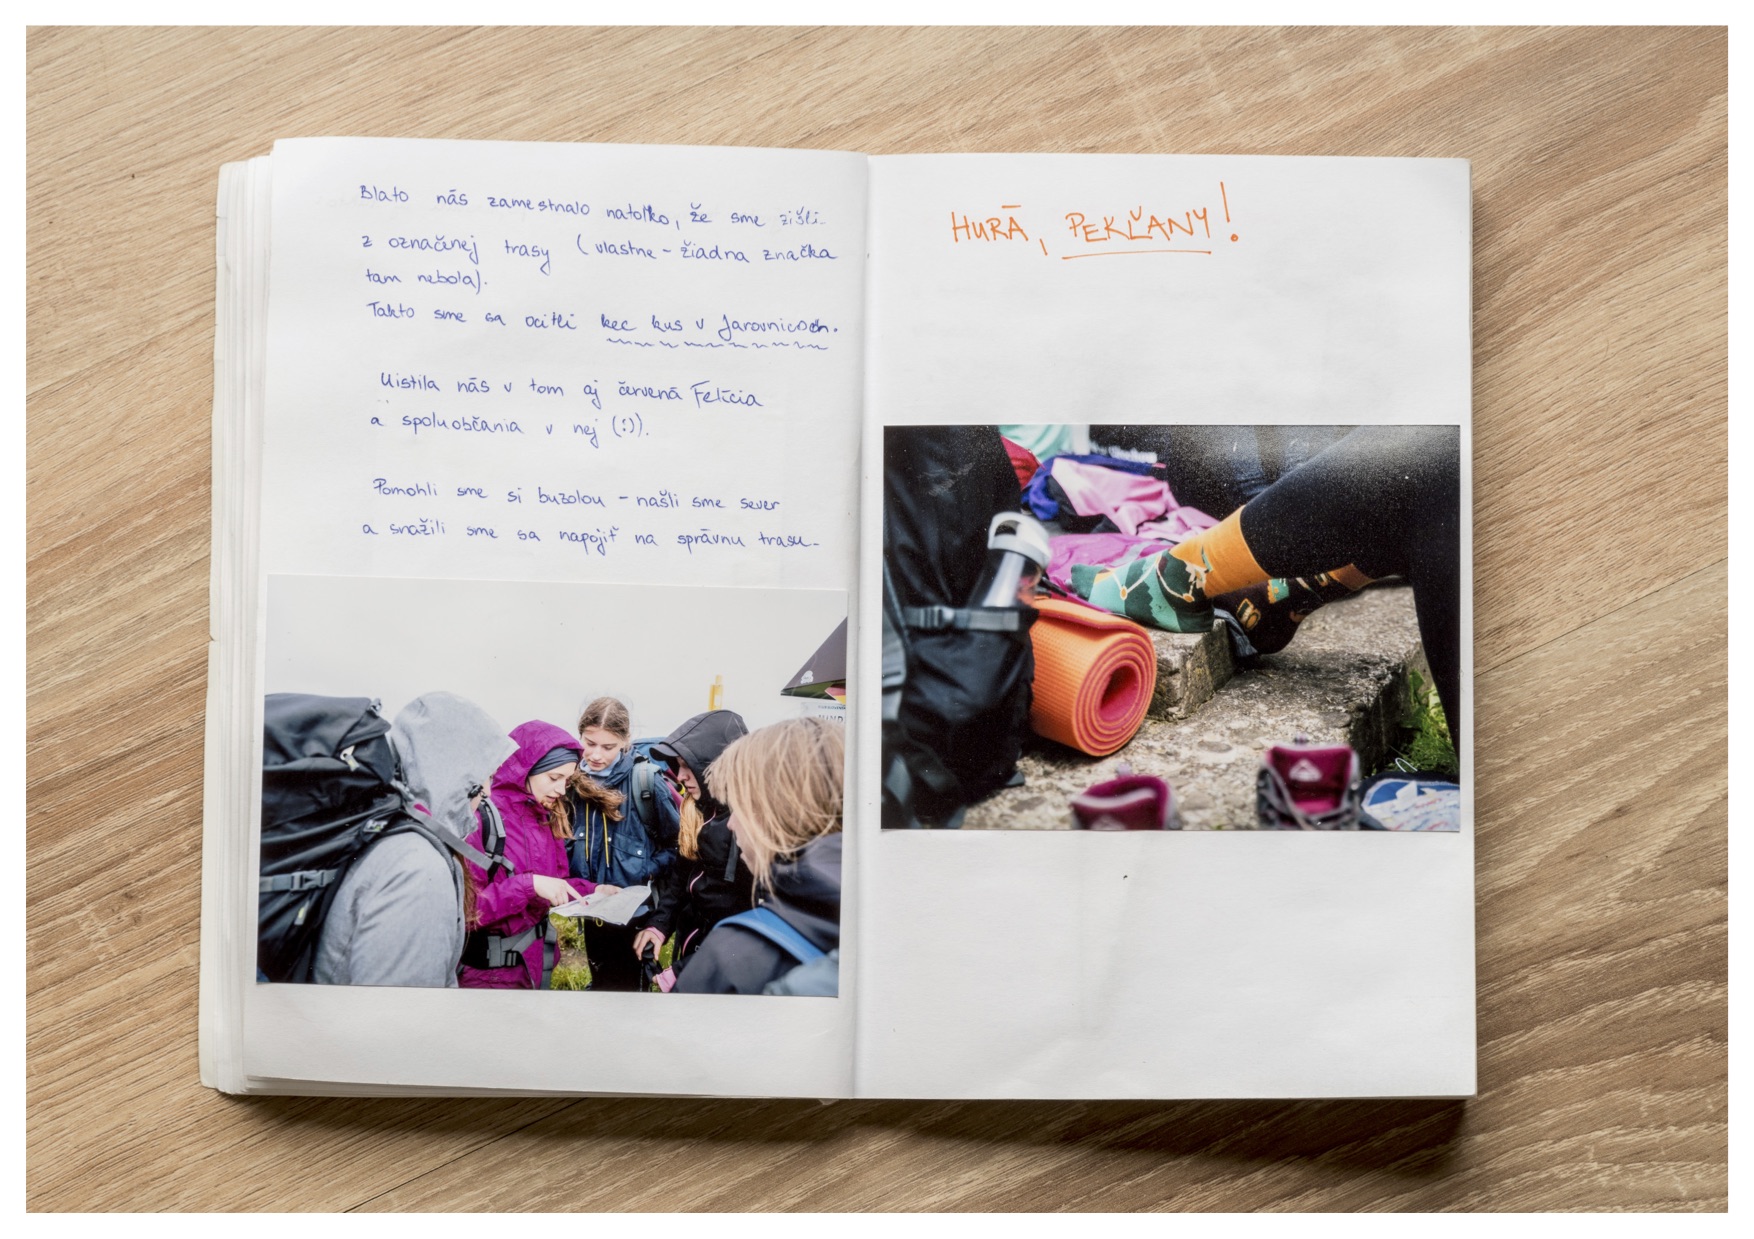 Blato nás zamestnalo natoľko, že sme zišli
z označenej trasy (vlastne - žiadna značka
tam nebola).
Takto sme sa ocitli kec kus v Jarovniciach.
Uistila nás v tom aj červená Felícia
a spoluobčania v nej (:)).
Pomohli sme si buzolou - našli sme sever
a snažili sme sa napojiť na správnu trasu.
HURÁ, PEKĽANY!